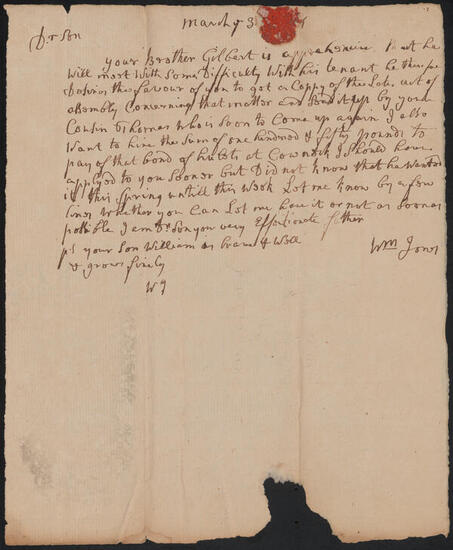 March ye 3
Dr Son
your Brother Gilbert is apprehensive that he
will meet with Some Difficulty with his tenant he therefore
Desires the favour of you to get a Copy of the Late act of
assembly Concerning that matter and Send it up by your
Cousin Thomas who is soon to Come up again I also
want to hire the Sum of one hundred & fifty pounds to
pay of that bond of at I Should have
applyed to you Sooner but Did not know that he wanted
it this Spring untill this week Let me know by a few
Lines whether you Can Let me have it or not as Soon as
possible I am Dr Son your very Effectionate father
ps your Son William is brave & well Wm Jones
& grows finely
WJ